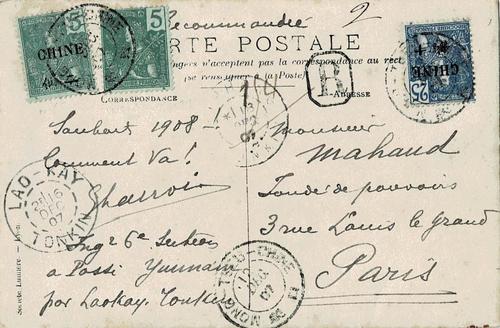 Recommandée 2
5 5
CHINE
CARTE POSTALE
ngers n'acceptent pas la correspondance au rect
(se renseigner à la Poste)
CHINE
25
R
CORRESPONDANCE
ADRESSE
Souhait 1908 -
Comment Va!
Monsieur
Mahaud
Fondé de pouvoirs
3 rue Louis le Grand
Paris
LAO-KAY
16
DEC
07
TONKIN
Ing 6e Section
a Possi Yunnam
par Laokay. Tonkin
MONG-TZEU CHINE
DEC
07
Société Lumière. — Lyon.